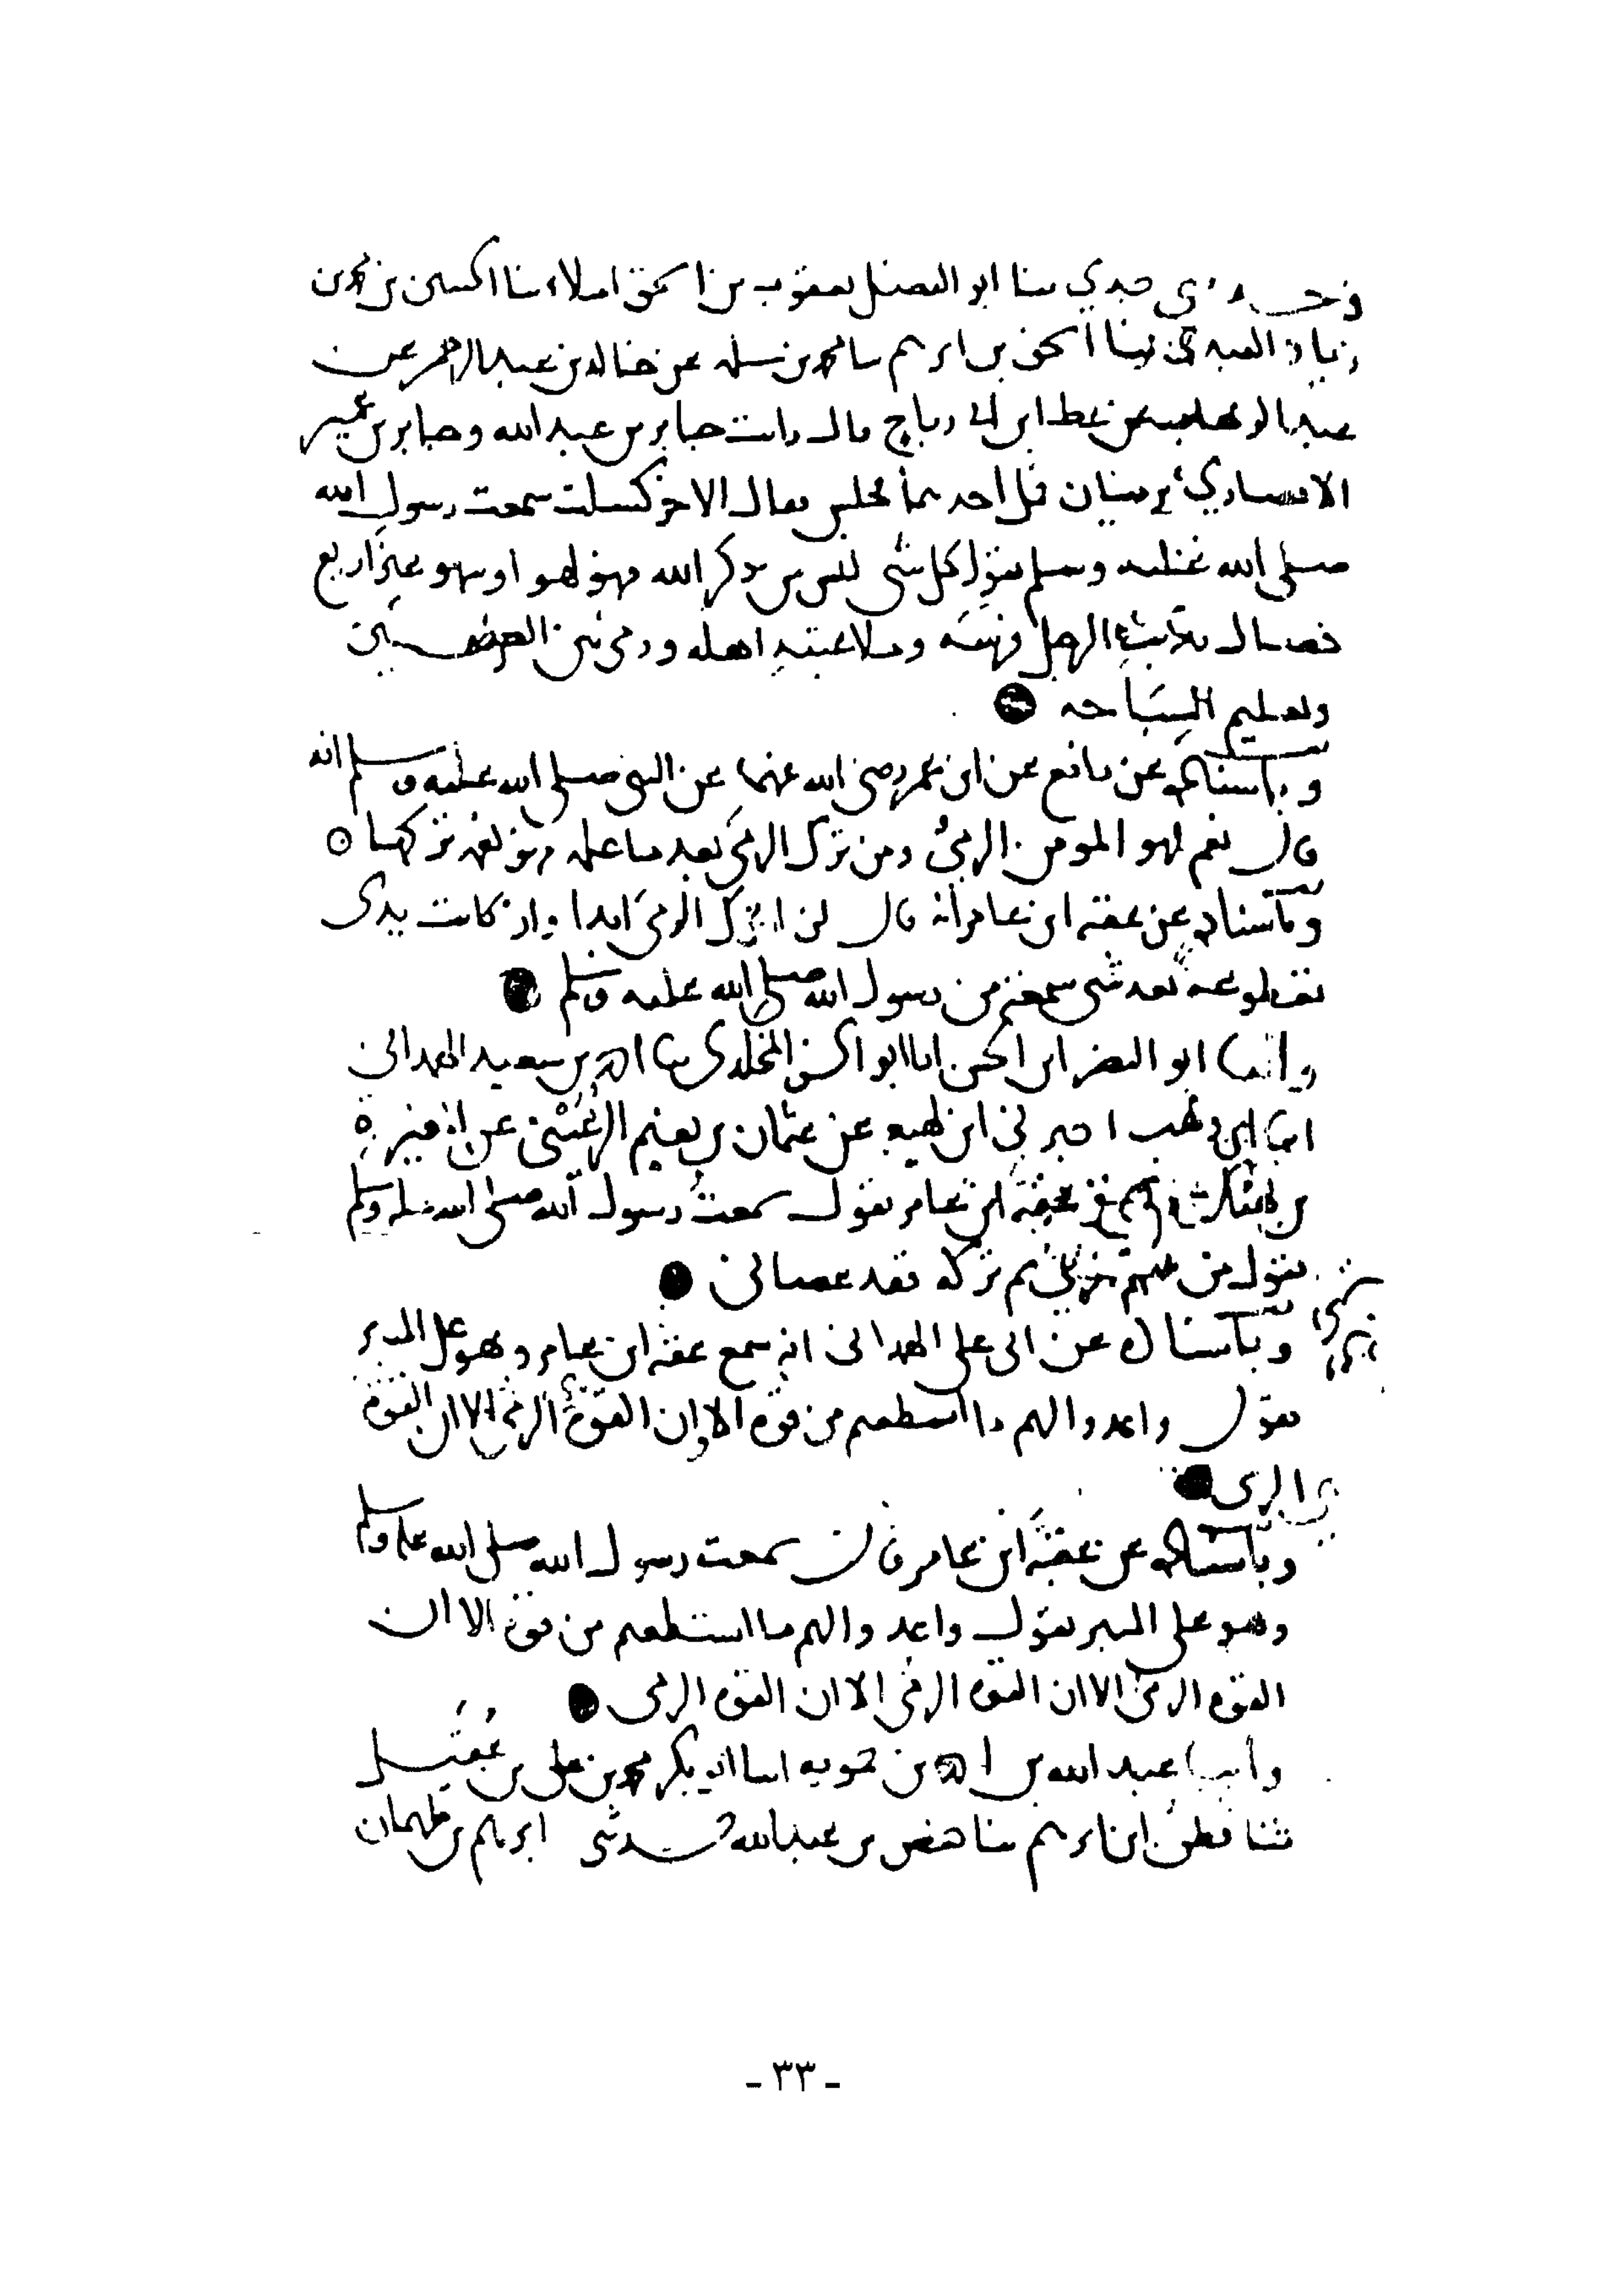 وحدثني جدي ثنا ابو الفضل يعقوب بن اسحق املاء ثنا الحسين بن محمد بن
زياد العبدي ثنا اسحق بن ابرهيم ثنا محمد بن سلمه عن خالد بن عبد الرحيم عن
عبد الوهاب عن عطا ابن ابي رباح قال رايت جابر بن عبد الله وجابر بن عمير
الانصاري يرميان فمل احدهما فجلس فقال الاخر كسلت سمعت رسول الله
صلى الله عليه وسلم يقول كل شي ليس من ذكر الله فهو لهو او سهو غير اربع
خصال تاديب الرجل فرسه وملاعبته اهله ورمي بين الغرضين
وتعليم السباحه
وباسناده عن نافع عن ابن عمر رضي الله عنهما عن النبي صلى الله عليه وسلم انه
قال نعم لهو المومن الرمي ومن ترك الرمي بعد ما علمه فهو نعمه تركها
وباسناده عن عقبه ابن عامر انه قال لن اترك الرمي ابدا وان كانت يدي
مقطوعة بعد شي سمعته من رسول الله صلى الله عليه وسلم
وانبا ابو النضر ابن الحسن انبا ابو الحسن المخلدي ثنا احمد بن سعيد الهمداني
انبا ابن وهب اخبرني ابن لهيعه عن عثمان بن نعيم الرعيني عن المغيرة
بن نهيك عقبة ابن عامر يقول سمعت رسول الله صلى الله عليه وسلم
يقول من ثم تركه فقد عصاني
وباسناده عن ابي علي الهمداني انه سمع عقبه ابن عامر وهو على المنبر
يقول واعدوا لهم ما استطعتم من قوه الا وان القوة الرمي الا ان القوة
الرمي
وباسناده عن عقبة ابن عامر قال سمعت رسول الله صلى الله عليه وسلم
وهو على المنبر يقول واعدوا لهم ما استطعتم من قوة الا ان
القوه الرمي الا ان القوه الرمي الا ان القوه الرمي
وانبا عبد الله بن احمد بن حمويه انبا ابو بكر محمد بن علي بن عقيل
ثنا قطن ابن ابرهيم ثنا حفص بن عبد الله حدثني ابرهيم بن طهمان
- ٣٣ -